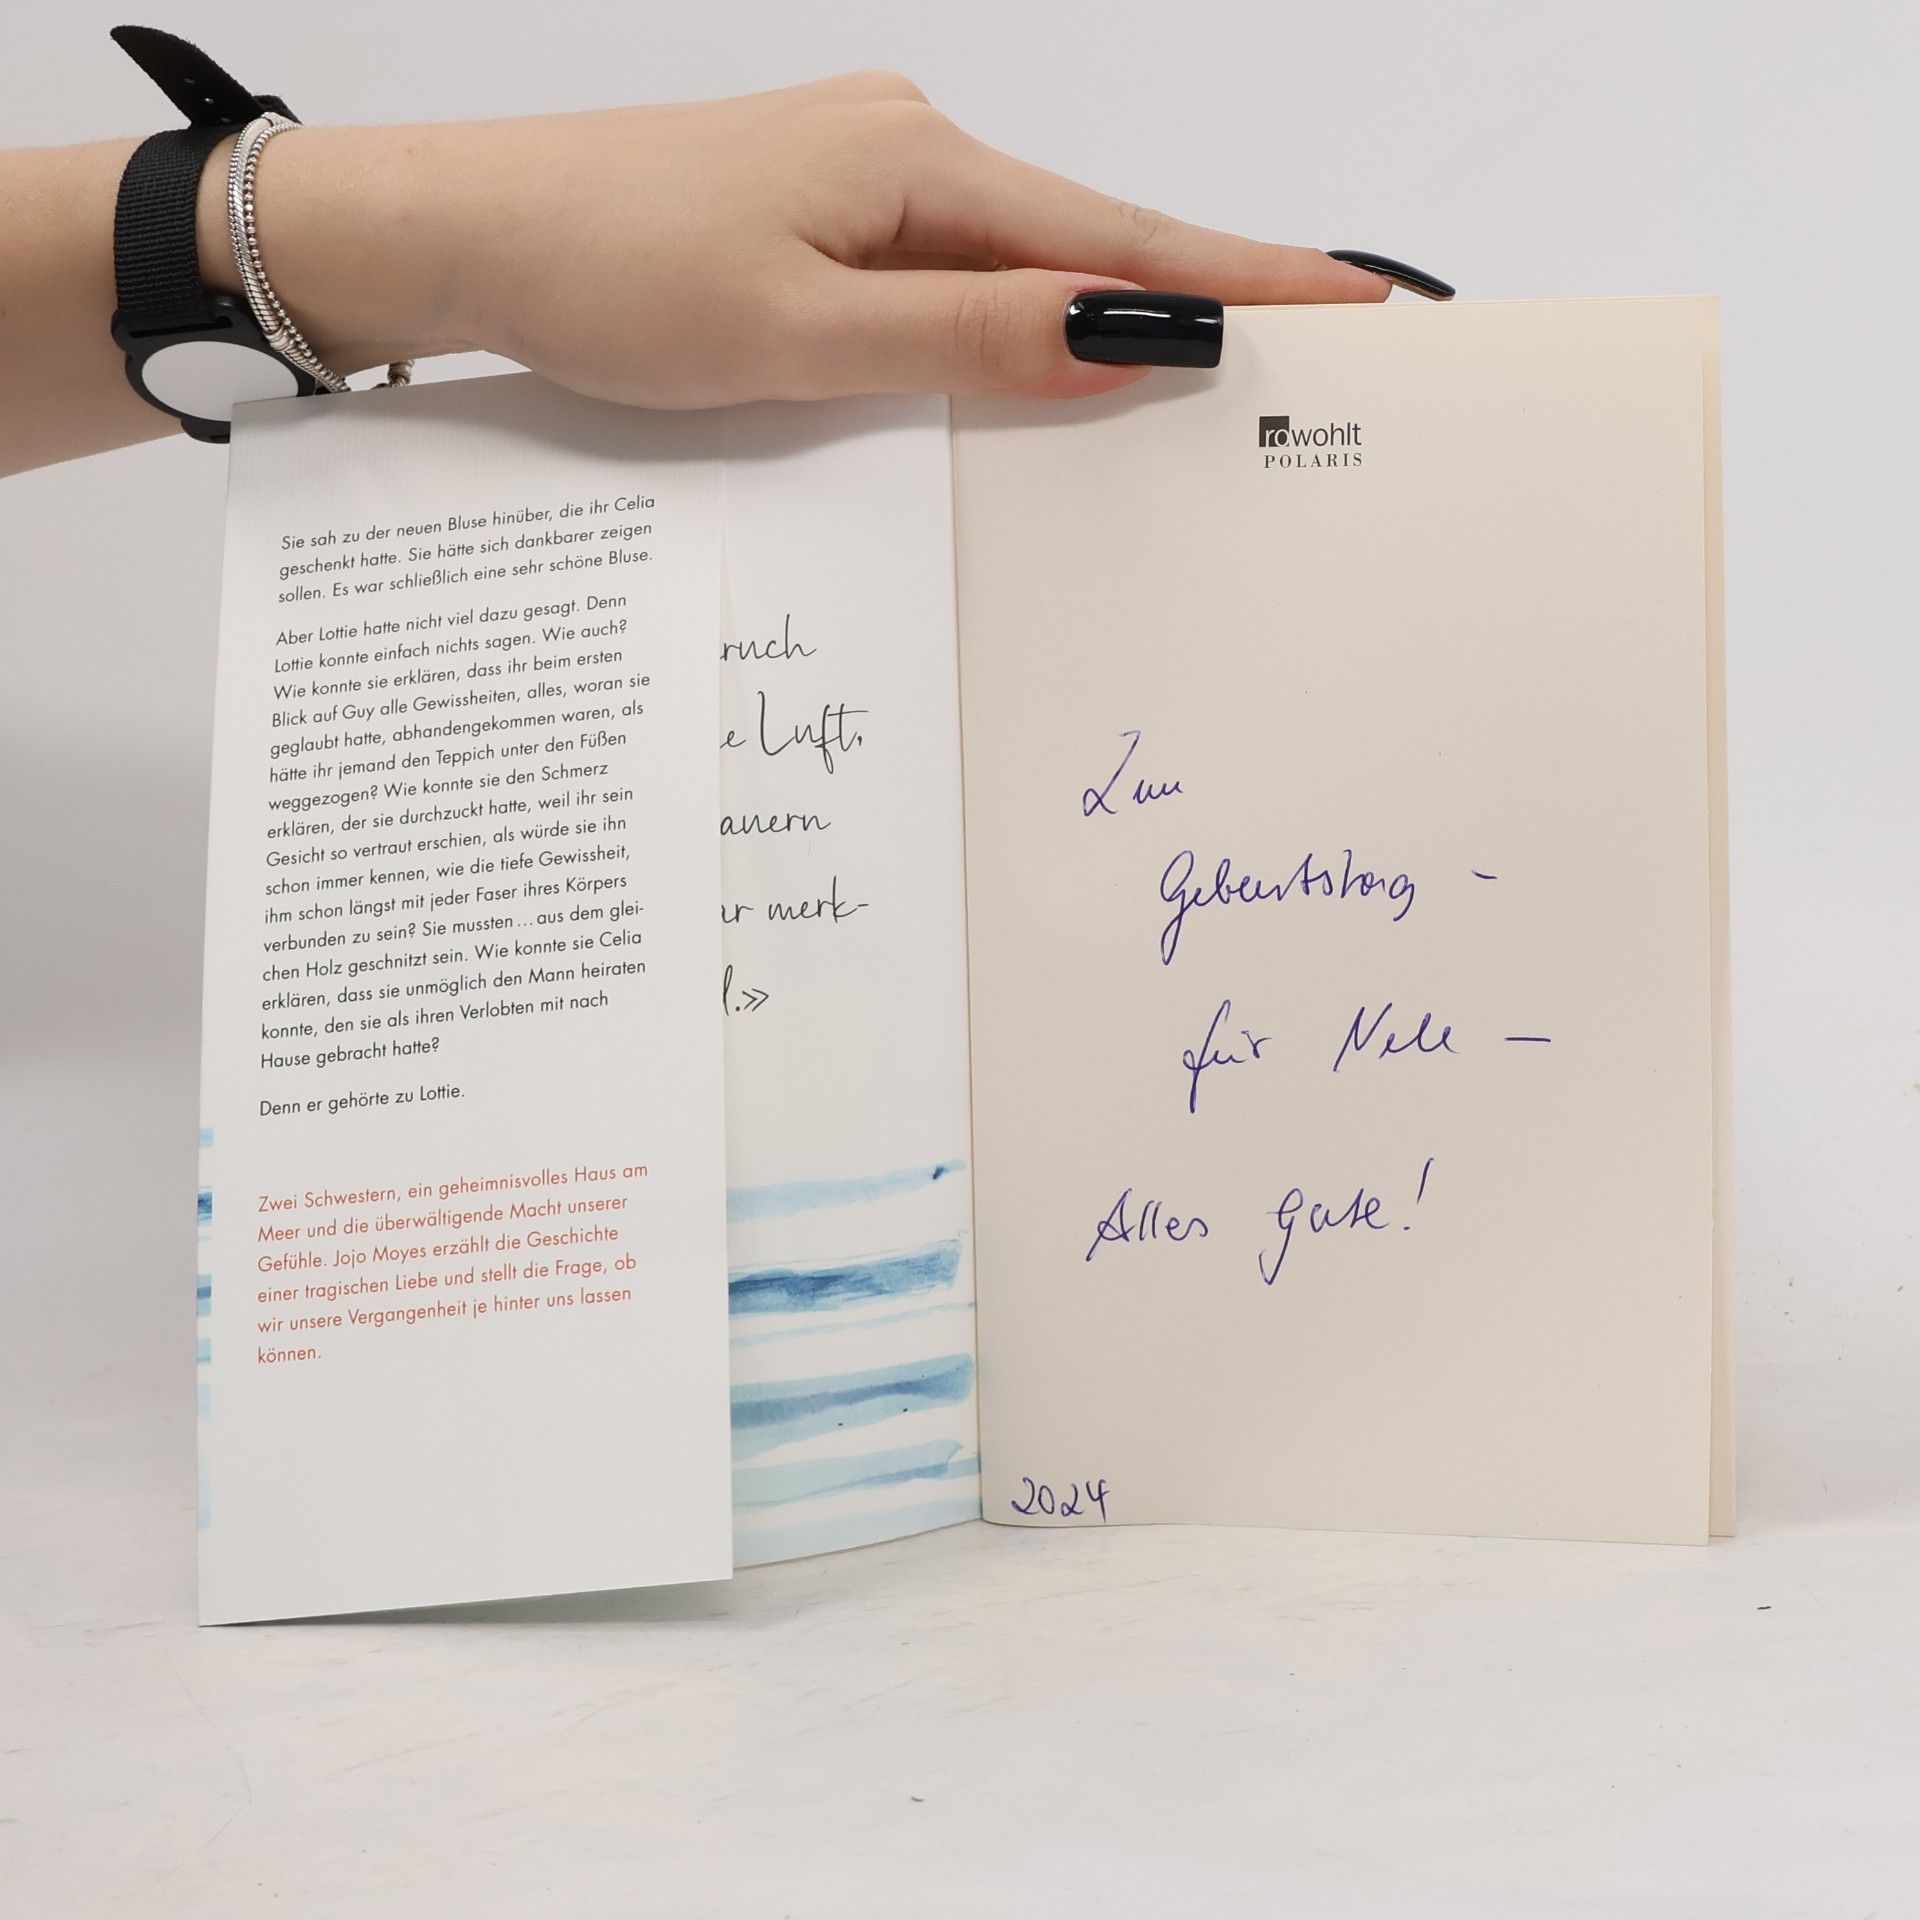 Sie sah zu der neuen Bluse hinüber, die ihr Celia
geschenkt hatte. Sie hätte sich dankbarer zeigen
sollen. Es war schließlich eine sehr schöne Bluse.
Aber Lottie hatte nicht viel dazu gesagt. Denn
Lottie konnte einfach nichts sagen. Wie auch?
Wie konnte sie erklären, dass ihr beim ersten
Blick auf Guy alle Gewissheiten, alles, woran sie
geglaubt hatte, abhandengekommen waren, als
hätte ihr jemand den Teppich unter den Füßen
weggezogen? Wie konnte sie den Schmerz
erklären, der sie durchzuckt hatte, weil ihr sein
Gesicht so vertraut erschien, als würde sie ihn
schon immer kennen, wie die tiefe Gewissheit,
ihm schon längst mit jeder Faser ihres Körpers
verbunden zu sein? Sie mussten ... aus dem glei-
chen Holz geschnitzt sein. Wie konnte sie Celia
erklären, dass sie unmöglich den Mann heiraten
konnte, den sie als ihren Verlobten mit nach
Hause gebracht hatte?
Denn er gehörte zu Lottie.
Zwei Schwestern, ein geheimnisvolles Haus am
Meer und die überwältigende Macht unserer
Gefühle. Jojo Moyes erzählt die Geschichte
einer tragischen Liebe und stellt die Frage, ob
wir unsere Vergangenheit je hinter uns lassen
können.
ruch
e Luft,
auern
ar merk-
l.»
rowohlt
POLARIS
Zum
Geburtstag -
für Nele —
Alles Gute!
2024